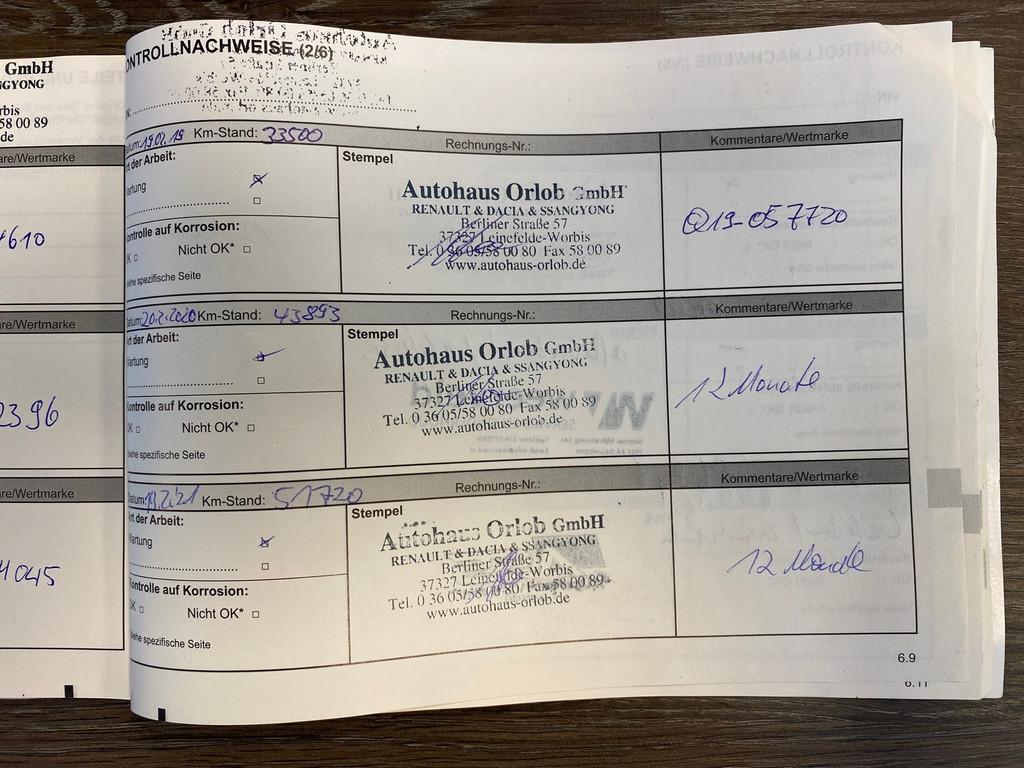 GmbH
NGYONG
rbis
58 00 89
de
are/Wertmarke
4610
are/Wertmarke
2396
are/Wertmarke
4045
ONTROLLNACHWEISE (2/6)
atum: 19.02.19 Km-Stand: 33500 Rechnungs-Nr.: Kommentare/Wertmarke
rt der Arbeit:
artung
Kontrolle auf Korrosion:
OK Nicht OK*
siehe spezifische Seite
Stempel
Autohaus Orlob GmbH
RENAULT & DACIA & SSANGYONG
Berliner Straße 57
37327 Leinefelde-Worbis
Tel. 0 36 05/58 00 80 Fax 58 00 89
www.autohaus-orlob.de
Q19-057720
Datum: 20.2.2020 Km-Stand: 43893 Rechnungs-Nr.: Kommentare/Wertmarke
Art der Arbeit:
Wartung
Kontrolle auf Korrosion:
OK Nicht OK*
siehe spezifische Seite
Stempel
Autohaus Orlob GmbH
RENAULT & DACIA & SSANGYONG
Berliner Straße 57
37327 Leinefelde-Worbis
Tel. 0 36 05/58 00 80 Fax 58 00 89
www.autohaus-orlob.de
12 Monate
Datum: 19.2.21 Km-Stand: 51720 Rechnungs-Nr.: Kommentare/Wertmarke
Art der Arbeit:
Wartung
Kontrolle auf Korrosion:
OK Nicht OK*
siehe spezifische Seite
Stempel
Autohaus Orlob GmbH
RENAULT & DACIA & SSANGYONG
Berliner Straße 57
37327 Leinefelde-Worbis
Tel. 0 36 05/58 00 80 Fax 58 00 89
www.autohaus-orlob.de
12 Monate
6.9
6.11